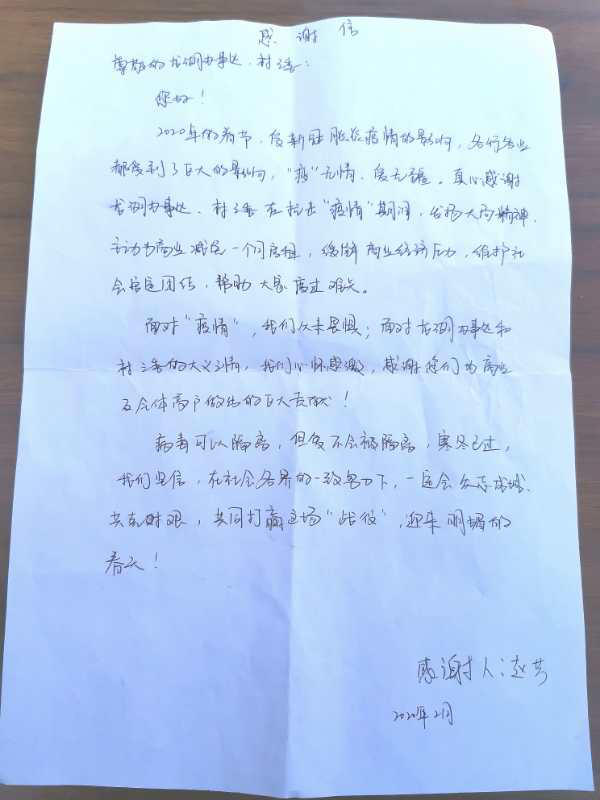 感谢信
尊敬的龙洞办事处、村委：
您好！
2020年的春节，受新冠肺炎疫情的影响，各行各业
都受到了巨大的影响，“疫”无情、爱无疆。真心感谢
龙洞办事处、村委在抗击“疫情”期间，发扬大局精神，
主动为商业减免一个月房租，缓解商业经济压力，维护社
会安定团结，帮助大家度过难关。
面对“疫情”，我们从未畏惧；面对龙洞办事处和
村委的大义之情，我们心怀感激，感谢您们为商业
区全体商户做出的巨大贡献！
病毒可以隔离，但爱不会被隔离，寒冬已过，
我们坚信，在社会各界的一致努力下，一定会众志成城、
共克时艰，共同打赢这场“战役”，迎来明媚的
春天！
感谢人：赵
2020年2月